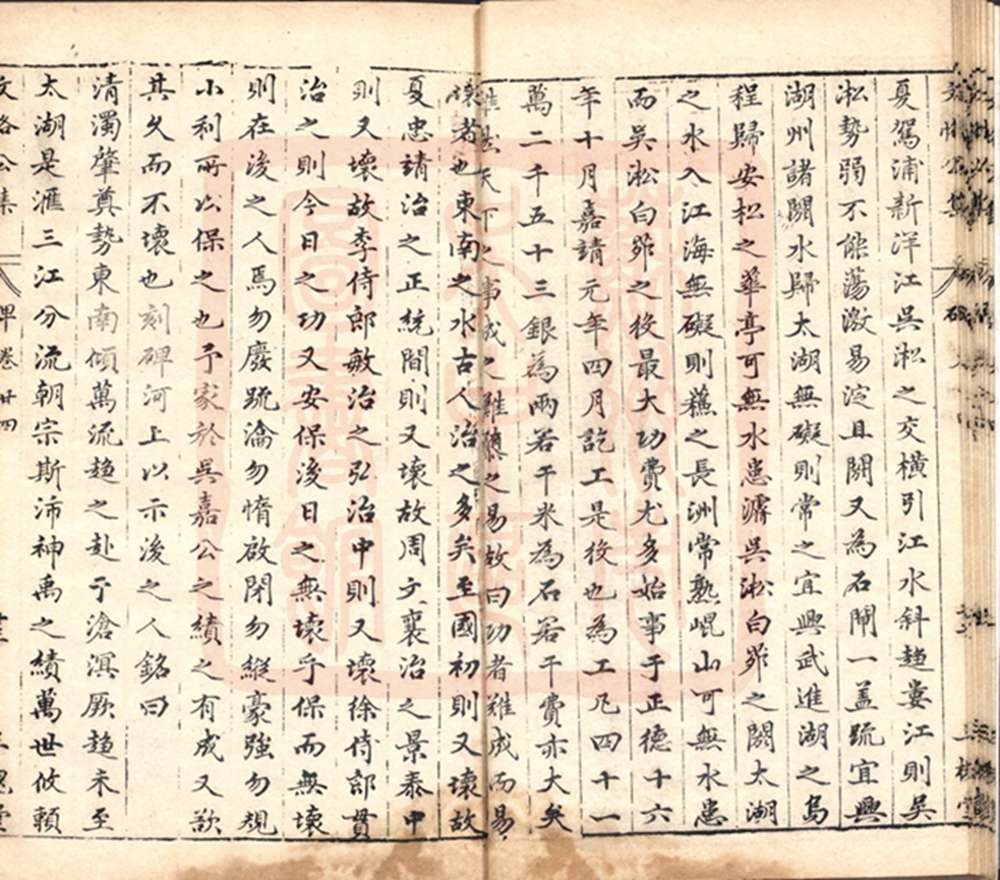 夏駕浦新洋江吳淞之交横引江水斜趋婁江則吳
淞勢弱不能蕩激易淀且闕又為石閘一盖疏宜興
湖州諸闕水歸太湖無礙則常之宜興武進湖之烏
程歸安松之華亭可無水患濬吳淞白茆之闕太湖
之水入江海無礙則蘓之長洲常熟崐山可無水患
而吳淞白茆之役最大功費尤多始事于正德十六
年十月嘉靖元年四月訖工是役也為工凡四十一
萬二千五十三銀為兩若干米為石若干費亦大矣
天下之事成之難隳之易故曰功者難成而易
壞者也東南之水古人治之多矣至國初則又壞故
夏忠請治之正統間則又壞故周文襄治之景泰中
則又壞故李侍郎敏治之弘治中則又壞徐侍郎貫
治之則今日之功又安保後日之無壞乎保而無壞
則在後之人焉勿廢疏瀹勿惰啟閉勿縱豪強勿規
小利所以保之也予家於吳嘉公之績之有成又歆
其久而不壞也刻碑河上以示後之人銘曰
清濁肇奠勢東南傾萬流趋之赴于滄溟厥趋未至
太湖是滙三江分流朝宗斯沛神禹之績萬世攸賴
文恪公集 碑 卷廿四